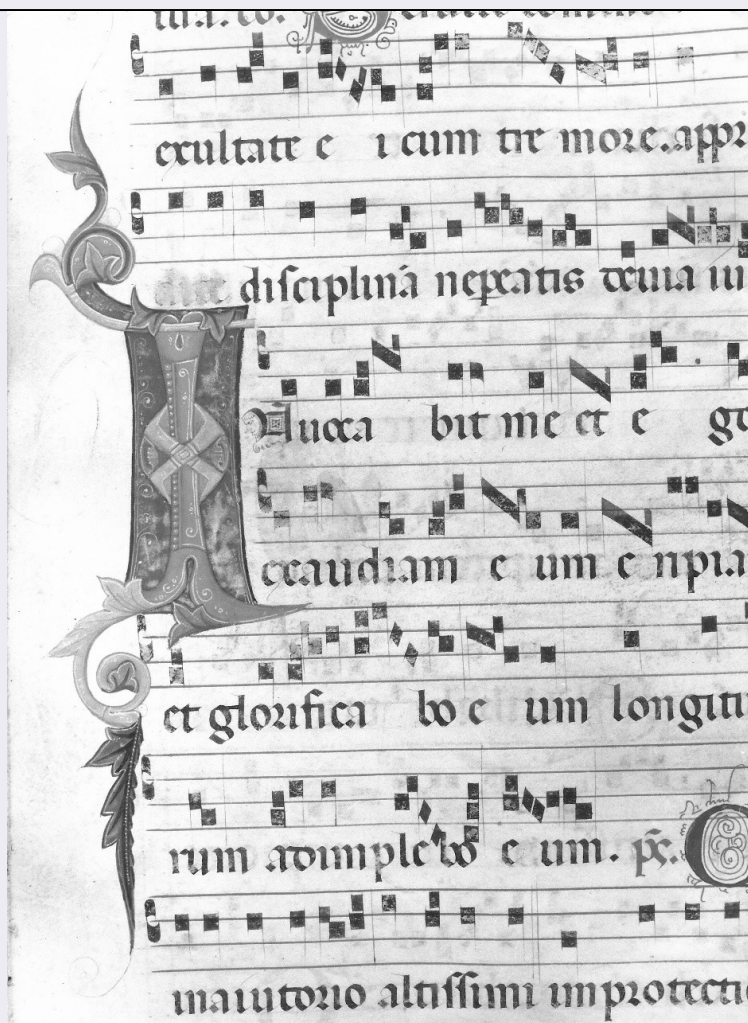 exultate e i cum tre more. appr
disciplinā nepeatis deuia iu
Inuoca bit me et e go
exaudiam e um e ripia
et glorifica bo e um longitu
rum adimple bo e um. ps. Q
inaiutorio altissimi inprotectio